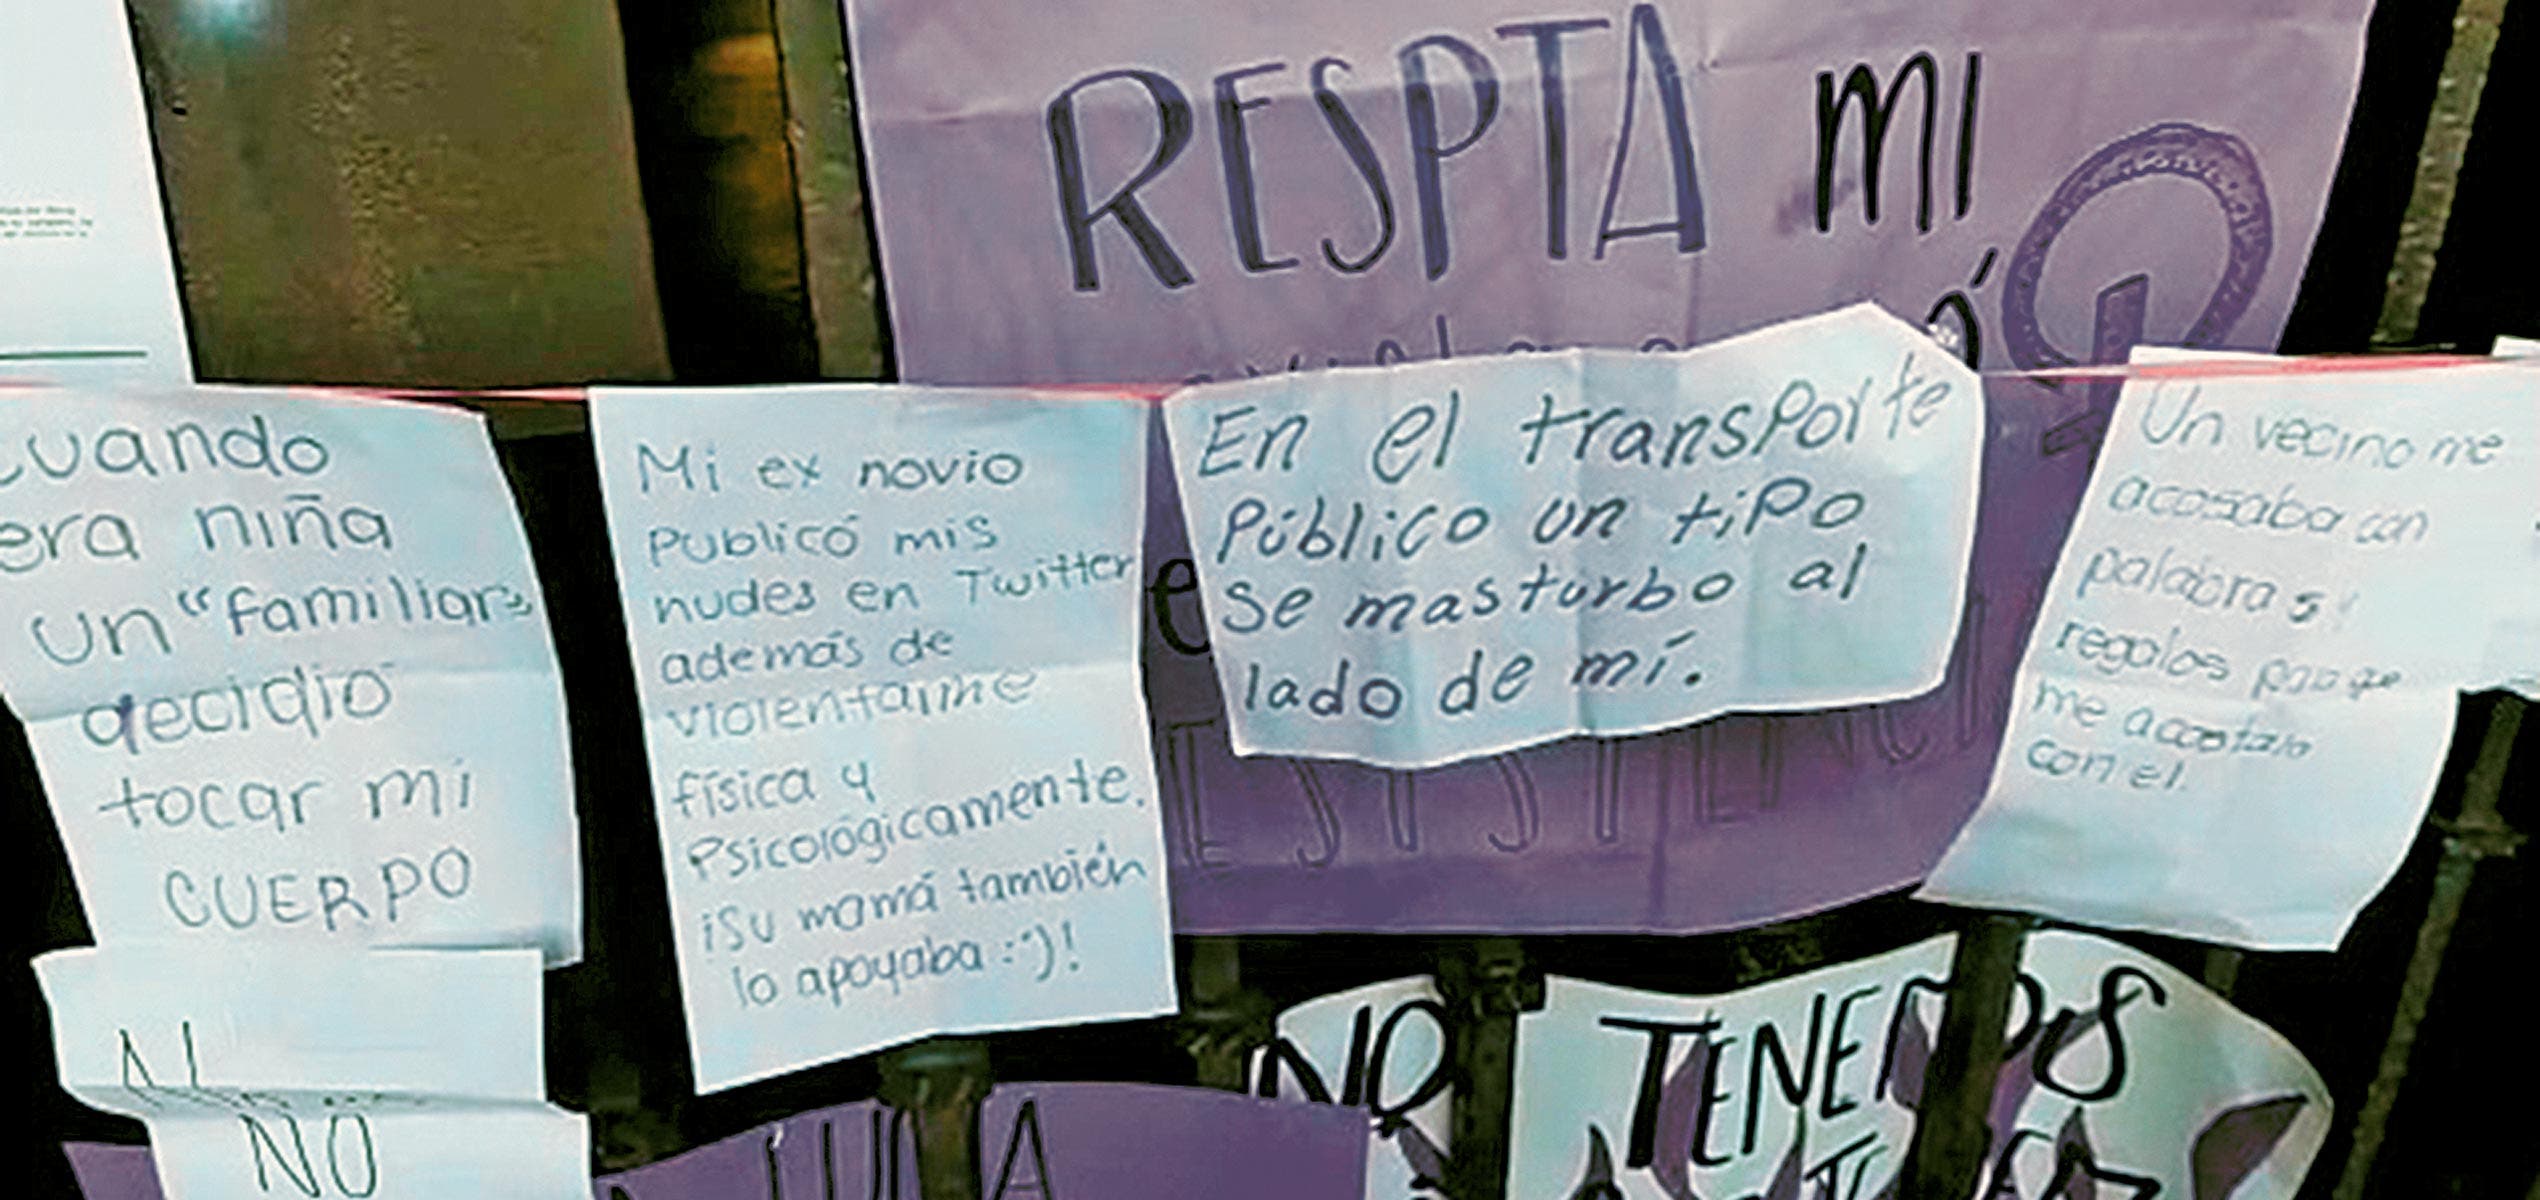 RESPTA MI
Cuando
era niña
un "familiar"
decidio
tocar mi
CUERPO
Mi ex novio
Publicó mis
nudes en Twitter
además de
violentarme
física y
Psicológicamente.
¡Su mamá también
lo apoyaba :')!
En el transporte
Público un tipo
se masturbo al
lado de mí.
Un vecino me
acosaba con
palabras y
regalos
me acostara
con el.
NO
NO TENEMOS